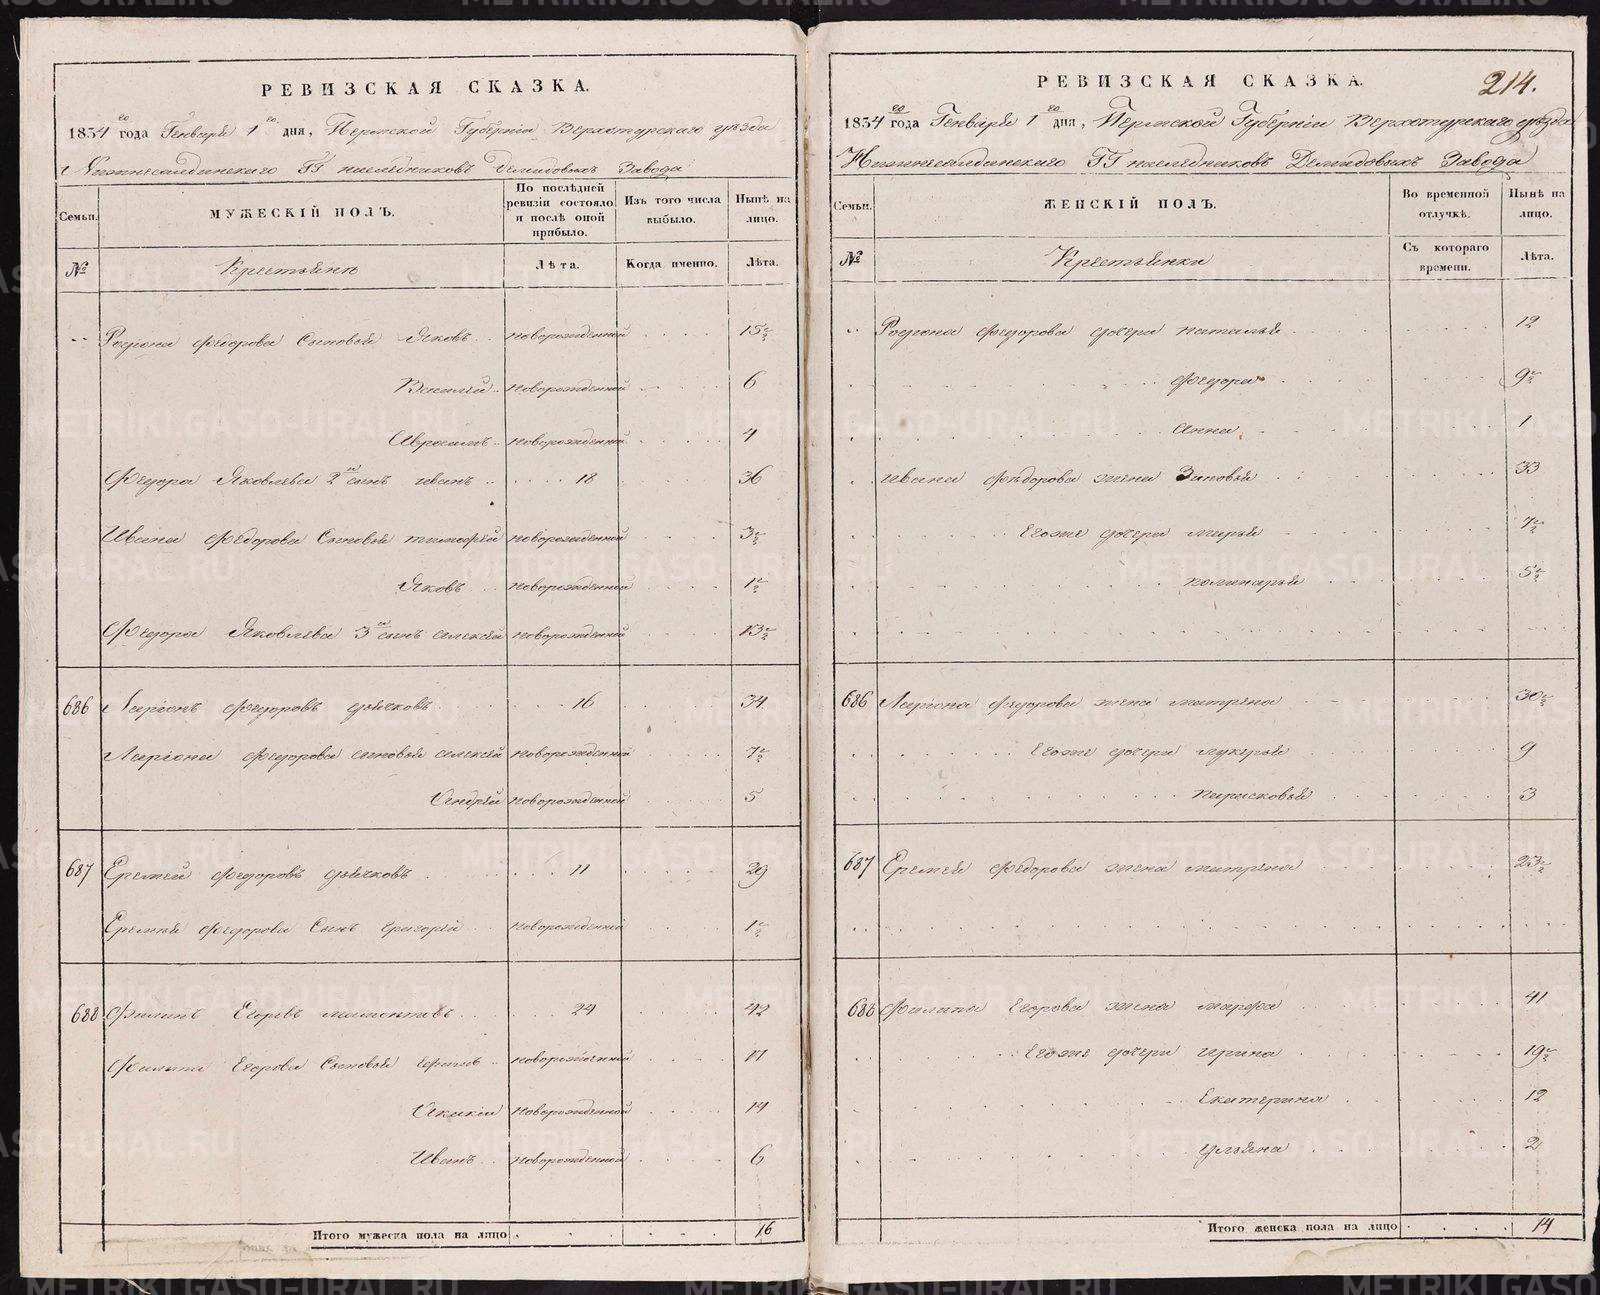 РЕВИЗСКАЯ СКАЗКА.
1834го года Генваря 1го дня, Пермской Губерніи Верхотурскаго уѣзда
Нижнесалдинскаго ГГ наслѣдниковъ Демидовыхъ Завода
Семьи.
МУЖЕСКІЙ ПОЛЪ.
По послѣдней ревизіи состояло и послѣ оной прибыло.
Изъ того числа выбыло.
Нынѣ на лицо.
№
Крестьяне
Лѣта.
Когда именно.
Лѣта.
Родіона Федорова Сыновья Яковъ новорожденной 15½
Василій новорожденной 6
Аврамъ новорожденной 4
Федора Яковлева 2й сынъ иванъ 18 36
Ивана Федорова Сыновья тимофей новорожденной 3½
Яковъ новорожденной 1½
Федора Яковлева 3й сынъ алексей новорожденной 13½
686 Ларіонъ Федоровъ дьячковъ 16 34
Ларіона Федорова сыновья алексей новорожденной 7½
Андрей новорожденной 5
687 Еремей Федоровъ дьячковъ 11 29
Еремея Федорова Сынъ григорій новорожденной 1½
688 Филипъ Егоровъ мамонтовъ 24 42
Филипа Егорова Сыновья ефимъ новорожденной 17
Акакій новорожденной 14
Иванъ новорожденной 6
Итого мужеска пола на лицо 16
РЕВИЗСКАЯ СКАЗКА.
214.
1834го года Генваря 1го дня, Пермской Губерніи Верхотурскаго уѣзда
Нижнесалдинскаго ГГ наслѣдниковъ Демидовыхъ Завода
Семьи.
ЖЕНСКІЙ ПОЛЪ.
Во временной отлучкѣ.
Нынѣ на лицо.
№
Крестьянки
Съ котораго времени.
Лѣта.
Родіона Федорова дочери наталья 12
Федора 9½
Анна 1
ивана Федорова жена Зиновья 33
Егоже дочери марья 7½
поликарья 5½
686 Ларіона Федорова жена матрена 30½
Егоже дочери лукерья 9
парасковья 3
687 Еремея Федорова жена матрена 23½
688 Филипа Егорова жена марфа 41
Егоже дочери ирина 19½
Екатерина 12
ульяна 2
Итого женска пола на лицо 14
METRIKI.GASO-URAL.RU